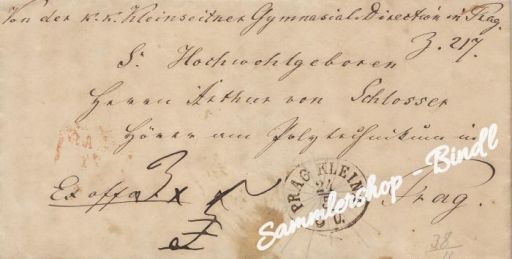 Von der k. k. Kleinseitner Gymnasial-Direction in Prag.
Z. 217.
Sr Hochwohlgeboren
Herrn Arthur von Schlosser
Hörer am Polytechnikum in
Prag.
Ex offo
PRAG KLEINS
Sammlershop - Bindl
38